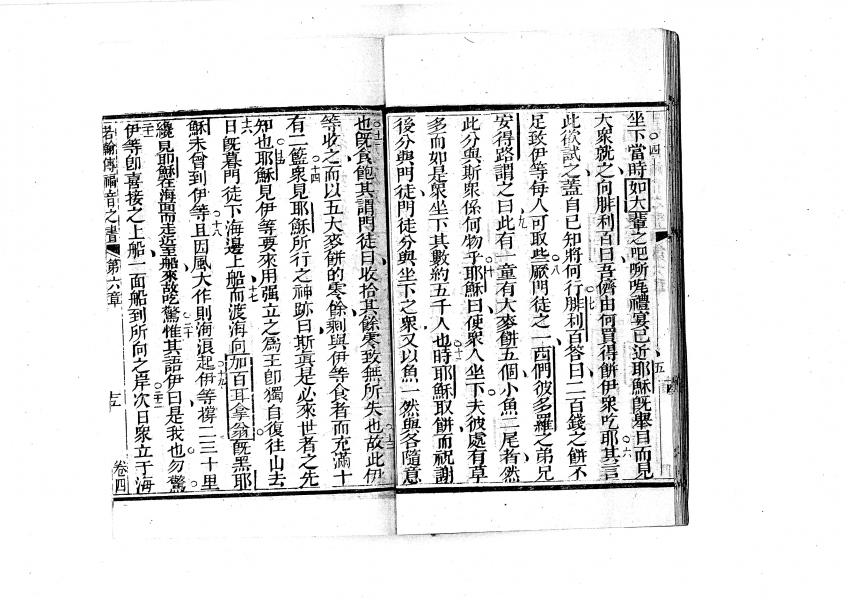 坐下。四當時如大輩之吧㖇㖿禮宴已近、五耶穌旣舉目而見
大衆就之、向腓利百曰、吾儕由何買得餅伊衆吃耶。六其言
此欲試之、蓋自己知將何行。七腓利百答曰、二百錢之餅不
足致伊等每人可取些。八厥門徒之一西們彼多羅之弟兄
安得路謂之曰、九此有一童有大麥餅五個、小魚二尾、若然
此分與斯衆、係何物乎。十耶穌曰、使衆人坐下、夫彼處有草
多、而如是衆坐下、其數約五千人也。十一時耶穌取餅而祝謝
後分與門徒、門徒分與坐下之衆、又以魚一然與各隨意
也。十二旣食飽、其謂門徒曰、收拾其餘零、致無所失也。十三故此伊
等收之、而以五大麥餅的零餘剩與伊等食者、而充滿十
有二籃。十四衆見耶穌所行之神跡曰、斯眞是必來世者之先
知也。十五耶穌見伊等要來用强立之爲王、卽獨自復往山去。
十六日旣暮、門徒下海邊、十七上船而渡海向加百耳拿翁、旣黑、耶
穌未曾到伊等、十八且因風大作、則海浪起。十九伊等撐二三十里
纔見耶穌在海面而走近至船來、故吃驚。二十惟其語伊曰、是我也、勿驚
二十一伊等卽喜接之上船、一面船到所向之岸。二十二次日衆立于海
若翰傳福音之書 第六章 卷四